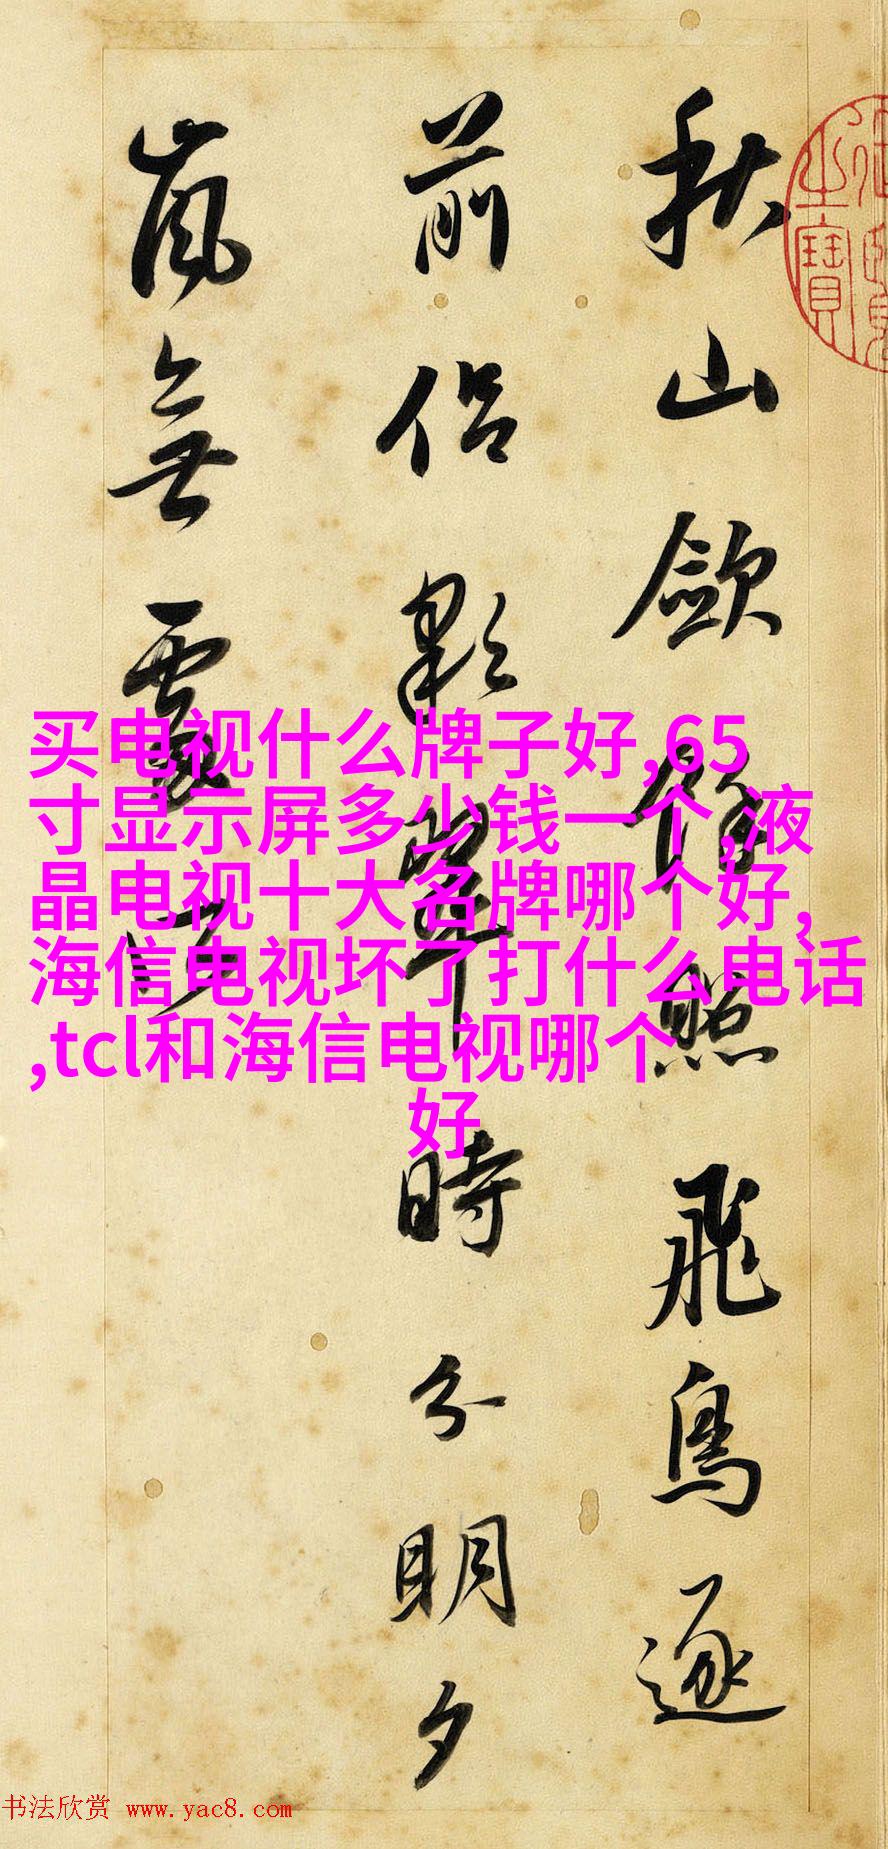 秋山歛餘照飛鳥逐
前侣彩翠時分明夕
嵐無處所
之寶
买电视什么牌子好,65
寸显示屏多少钱一个,液
晶电视十大名牌哪个好,
海信电视坏了打什么电话
,tcl和海信电视哪个
好
书法欣赏 www.yac8.com